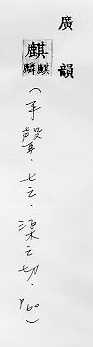 廣韻
麒麒麟
(平聲.七之.渠之切.